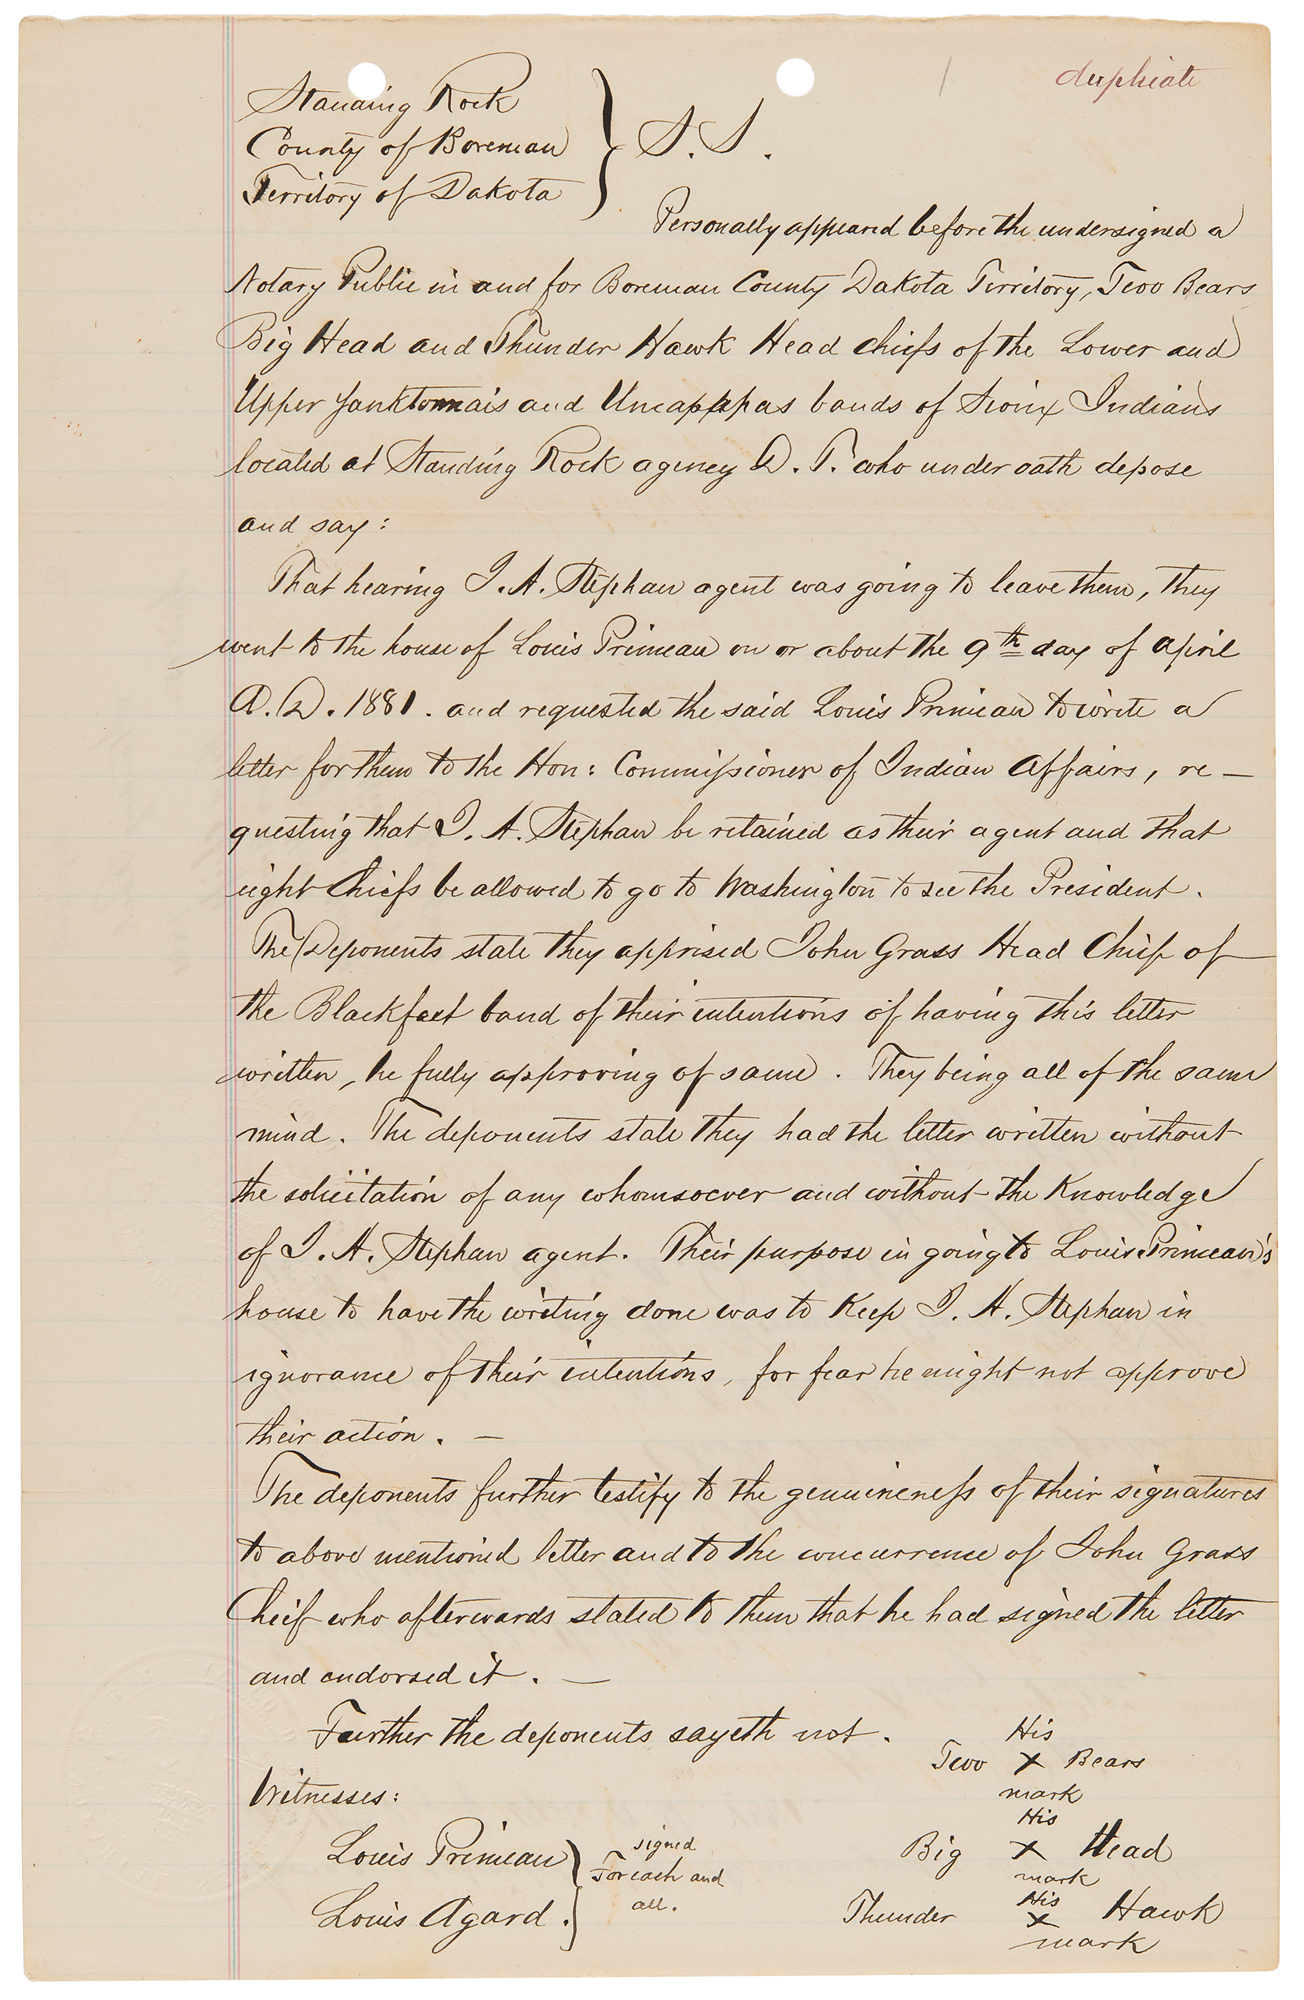 duplicate
Standing Rock
County of Boreman
Territory of Dakota
S.S.
Personally appeared before the undersigned a
Notary Public in and for Boreman County Dakota Territory, Two Bears
Big Head and Thunder Hawk Head chiefs of the Lower and
Upper Yanktonnais and Uncappapas bands of Sioux Indians
located at Standing Rock agency D. T. who under oath depose
and say:
That hearing J. A. Stephan agent was going to leave them, they
went to the house of Louis Primeau on or about the 9th day of April
A. D. 1881. and requested the said Louis Primeau to write a
letter for them to the Hon: Commissioner of Indian Affairs, re-
questing that J. A. Stephan be retained as their agent and that
eight Chiefs be allowed to go to Washington to see the President.
The Deponents state they apprised John Grass Head Chief of
the Blackfeet band of their intentions of having this letter
written, he fully approving of same. They being all of the same
mind. The deponents state they had the letter written without
the solicitation of any whomsoever and without the Knowledge
of J. A. Stephan agent. Their purpose in going to Louis Primeau's
house to have the writing done was to Keep J. A. Stephan in
ignorance of their intentions, for fear he might not approve
their action. —
The deponents further testify to the genuineness of their signatures
to above mentioned letter and to the concurrence of John Grass
Chief who afterwards stated to them that he had signed the letter
and endorsed it. —
Further the deponents sayeth not.
His
Two X Bears
mark
Witnesses:
His
Big X Head
mark
Louis Primeau
Louis Agard.
signed
For each and
all.
His
Thunder X Hawk
mark